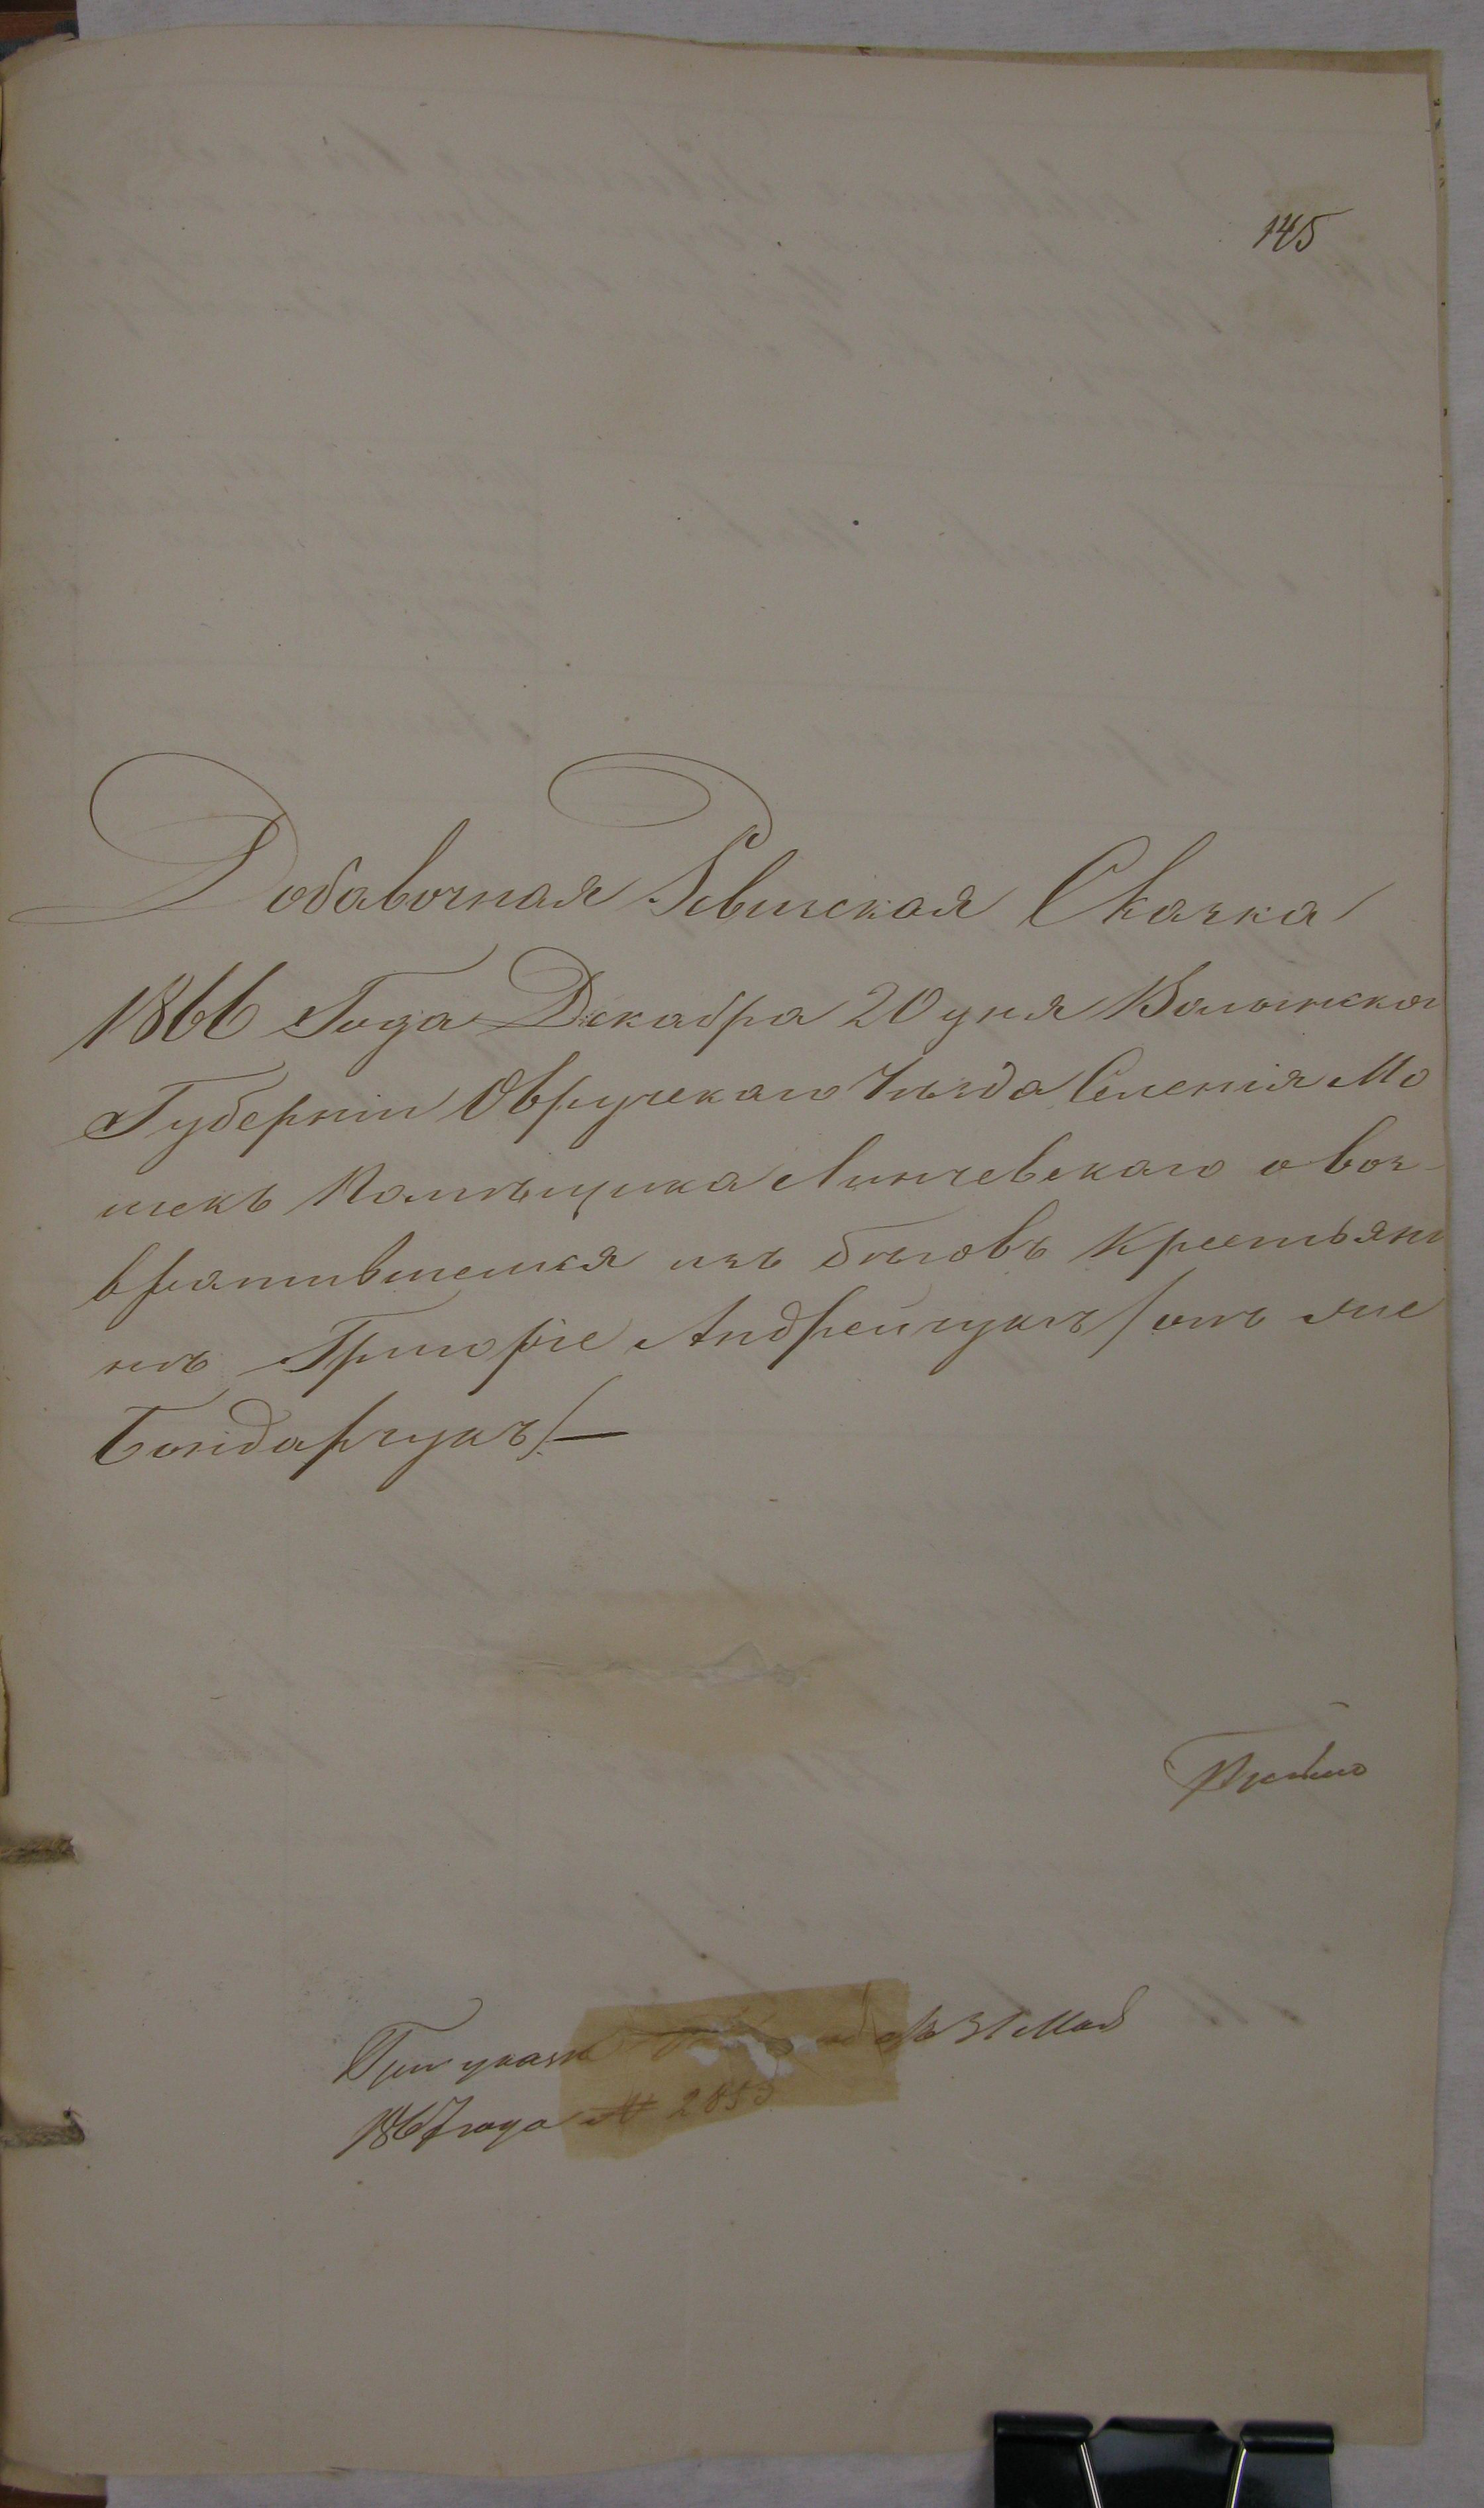 145
Добавочная Ревизская Сказка
1866 Года Декабря 20 дня Волынской
Губерніи Овручскаго Уѣзда Селенія Мо
шекъ Помѣщика Линчевскаго о воз-
вратившемся изъ бѣговъ крестьяни
нѣ Григоріе Андрейчукѣ /онъ же
Бондарчукъ/—
При указѣ 31 Мая
1867 года № 2853